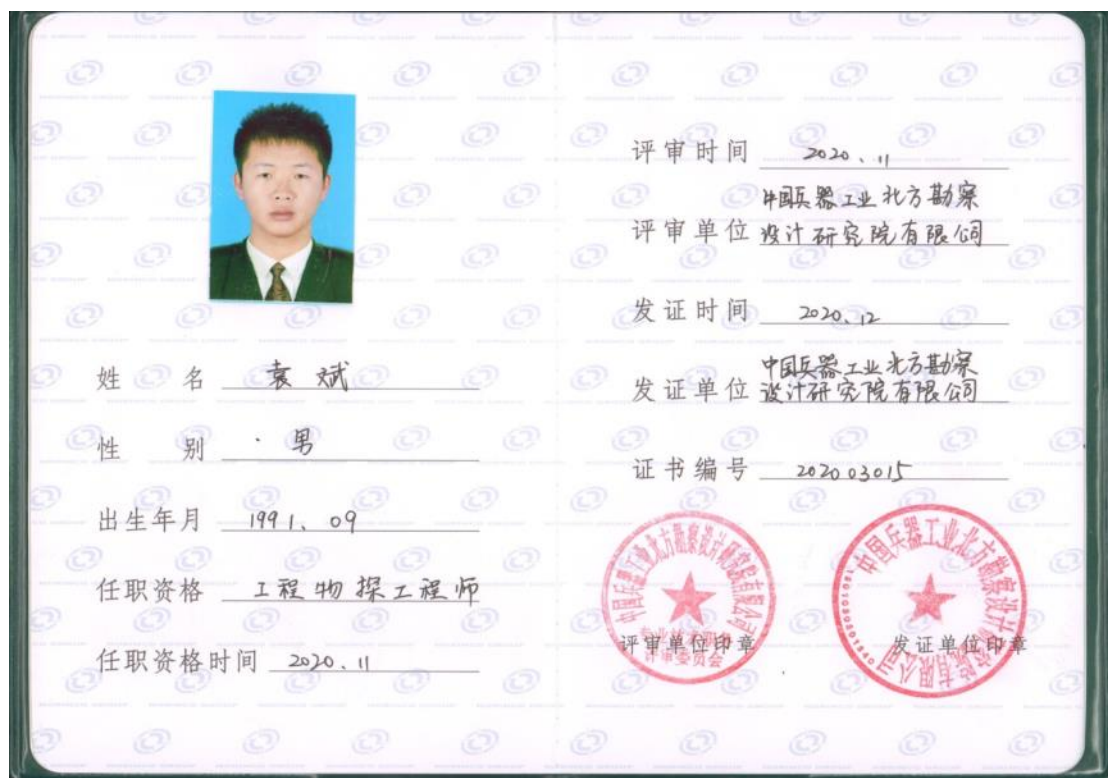 姓名 袁斌
性别 男
出生年月 1991.09
任职资格 工程物探工程师
任职资格时间 2020.11
评审时间 2020.11
中国兵器工业北方勘察
评审单位 设计研究院有限公司
发证时间 2020.12
中国兵器工业北方勘察
发证单位 设计研究院有限公司
证书编号 202003015
中国兵器工业北方勘察设计研究院有限公司
评审单位印章
评审委员会
中国兵器工业北方勘察设计研究院有限公司
发证单位印章